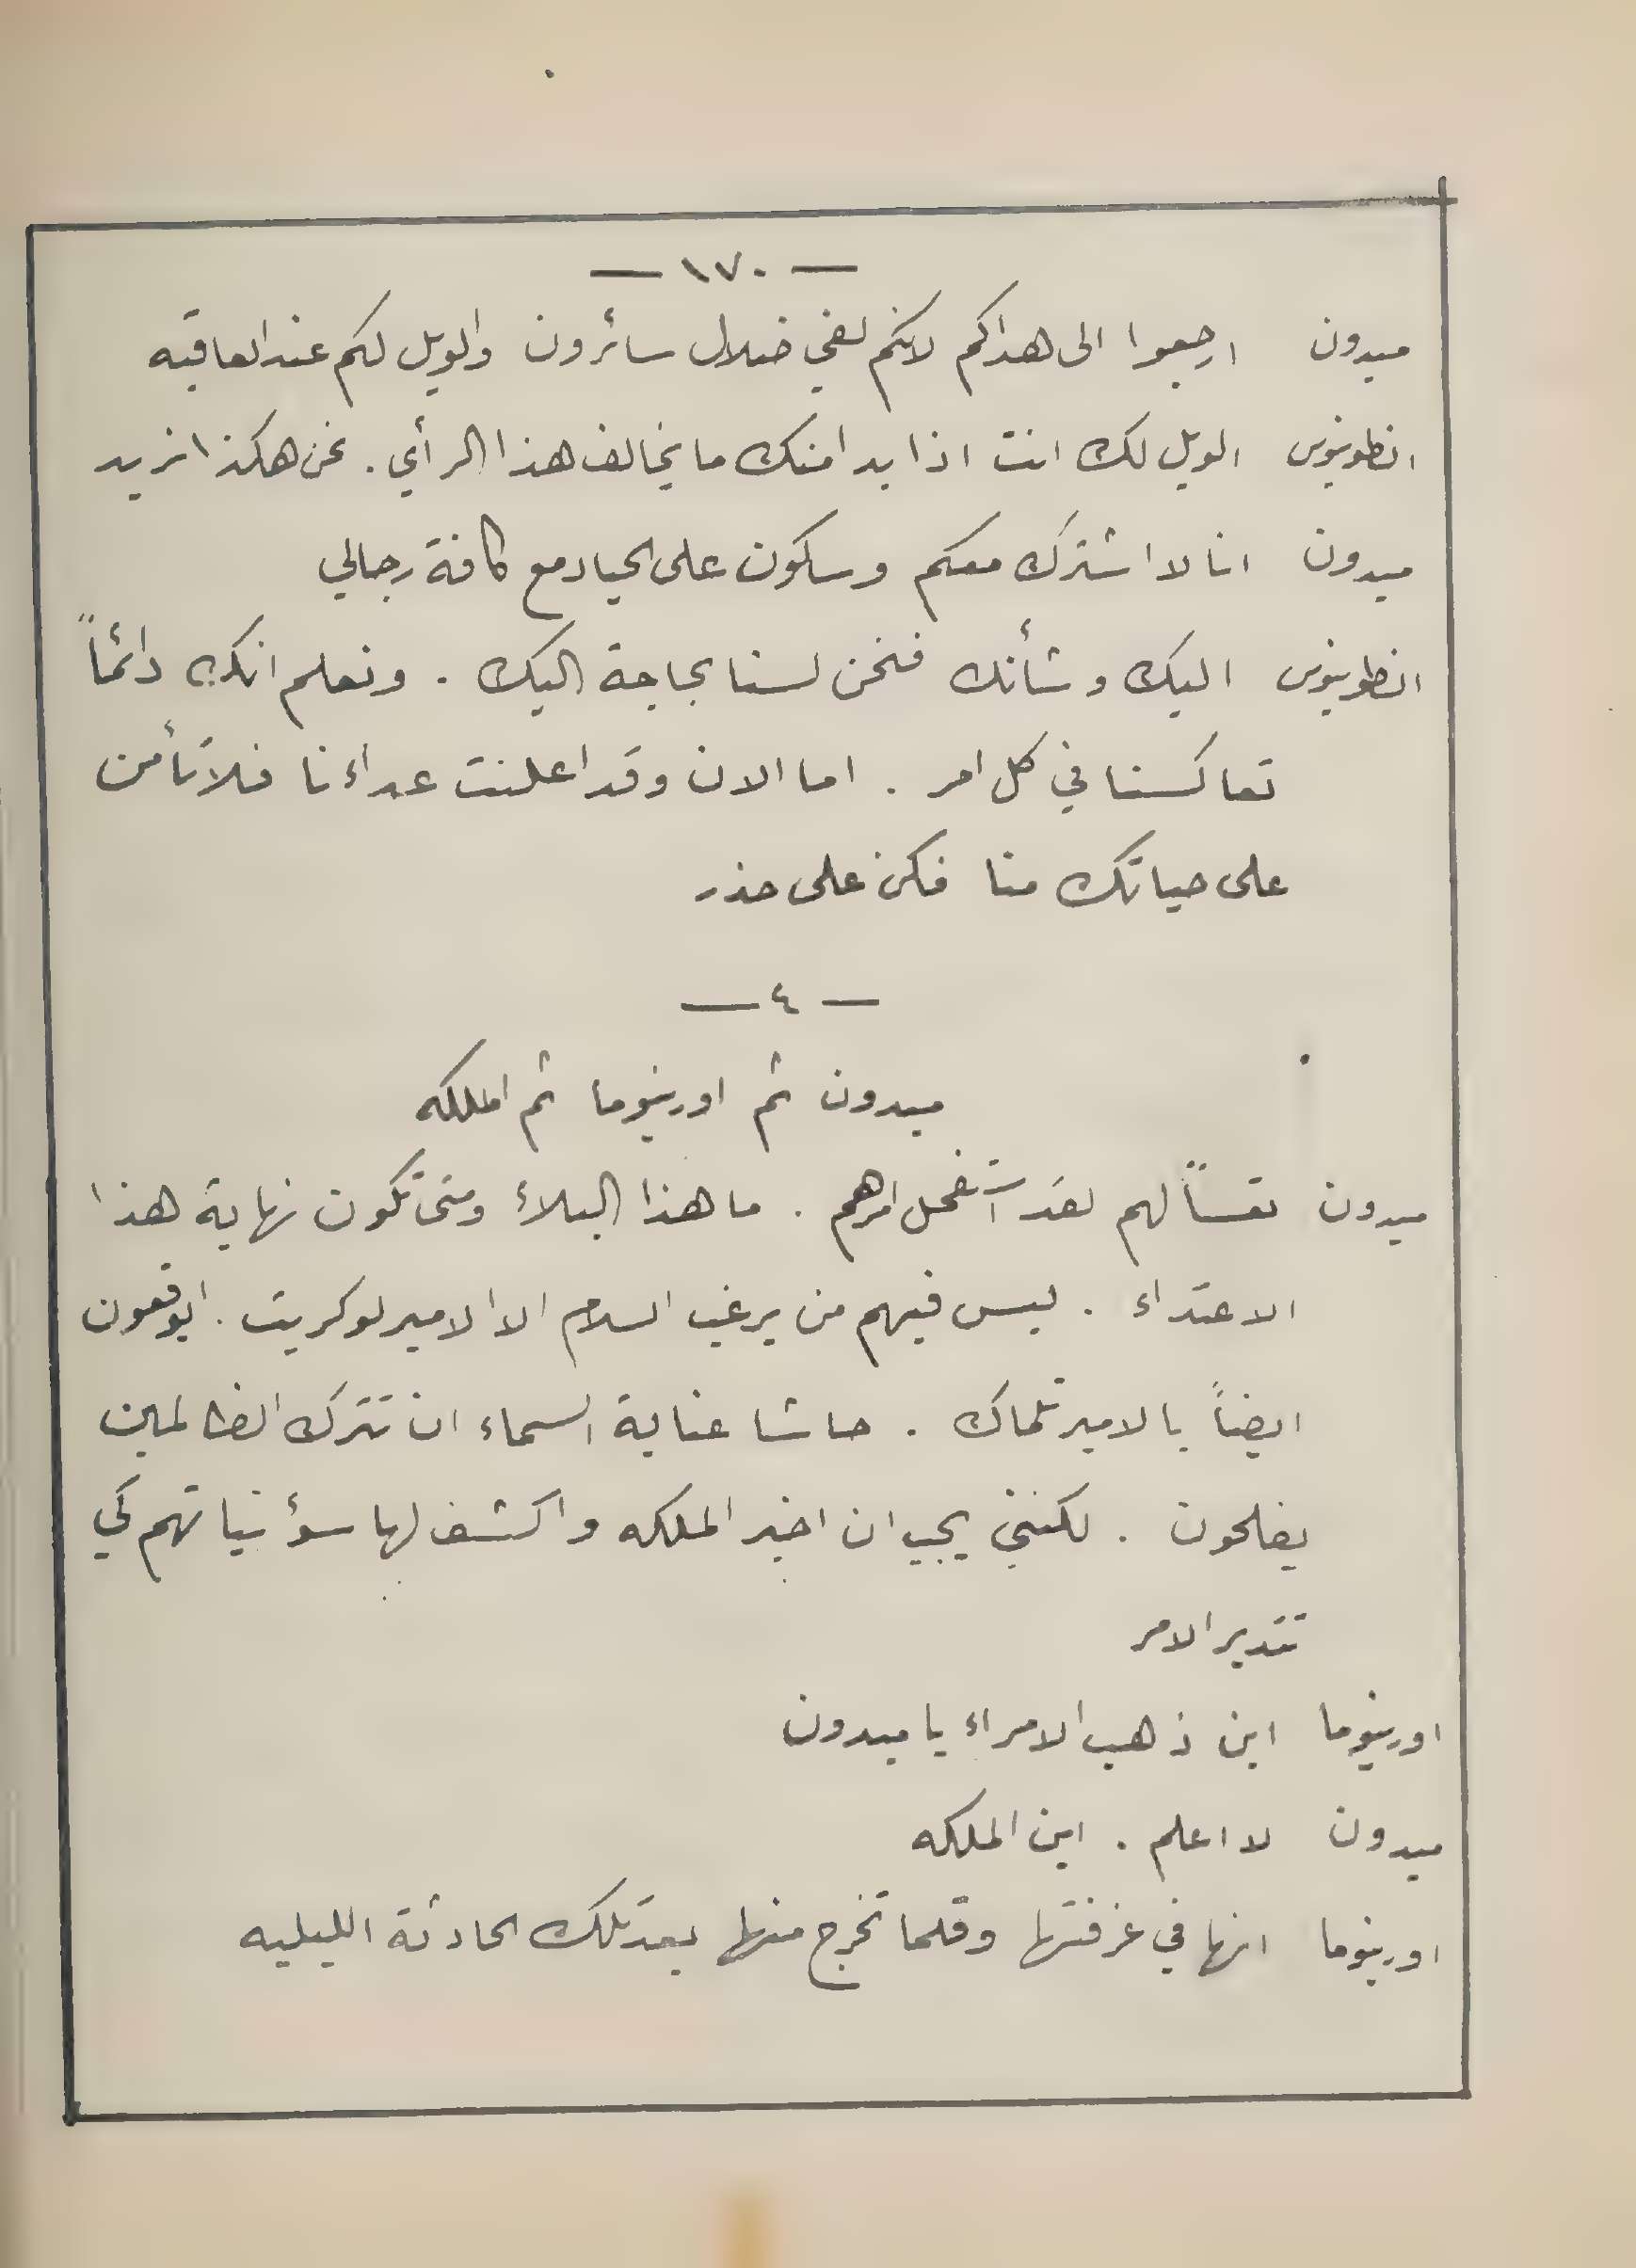 — ١٧٠ —
ميدون ارجعوا الى هداكم لانكم لفي ضلال سائرون والويل لكم عند العاقبه
انطونيوس الويل لك انت اذا بدا منك ما يخالف هذا الرأي . نحن هكذا نريد
ميدون انا لا اشترك معكم وساكون على الحياد مع كافة رجالي
انطونيوس اليك وشأنك فنحن لسنا بحاجة اليك . ونعلم انك دائماً
تعاكسنا في كل امر . اما الان وقد اعلنت عداءنا فلا تأمن
على حياتك منا فكن على حذر
— ٤ —
ميدون ثم اورينوما ثم الملكه
ميدون تعساً لهم لقد استفحل امرهم . ما هذا البلاء ومتى تكون نهاية هذا
الاعتداء . ليس فيهم من يرغب السلام الا الامير لوكريت . ايوقعون
ايضاً بالامير تلماك . حاشا عناية السماء ان تترك الظالمين
يفلحون . لكنني يجب ان اخبر الملكه واكشف لها سؤ نياتهم كي
تتدبر الامر
اورينوما اين ذهب الامراء يا ميدون
ميدون لا اعلم . اين الملكه
اورينوما انها في غرفتها وقلما تخرج منها بعد تلك الحادثة الليليه